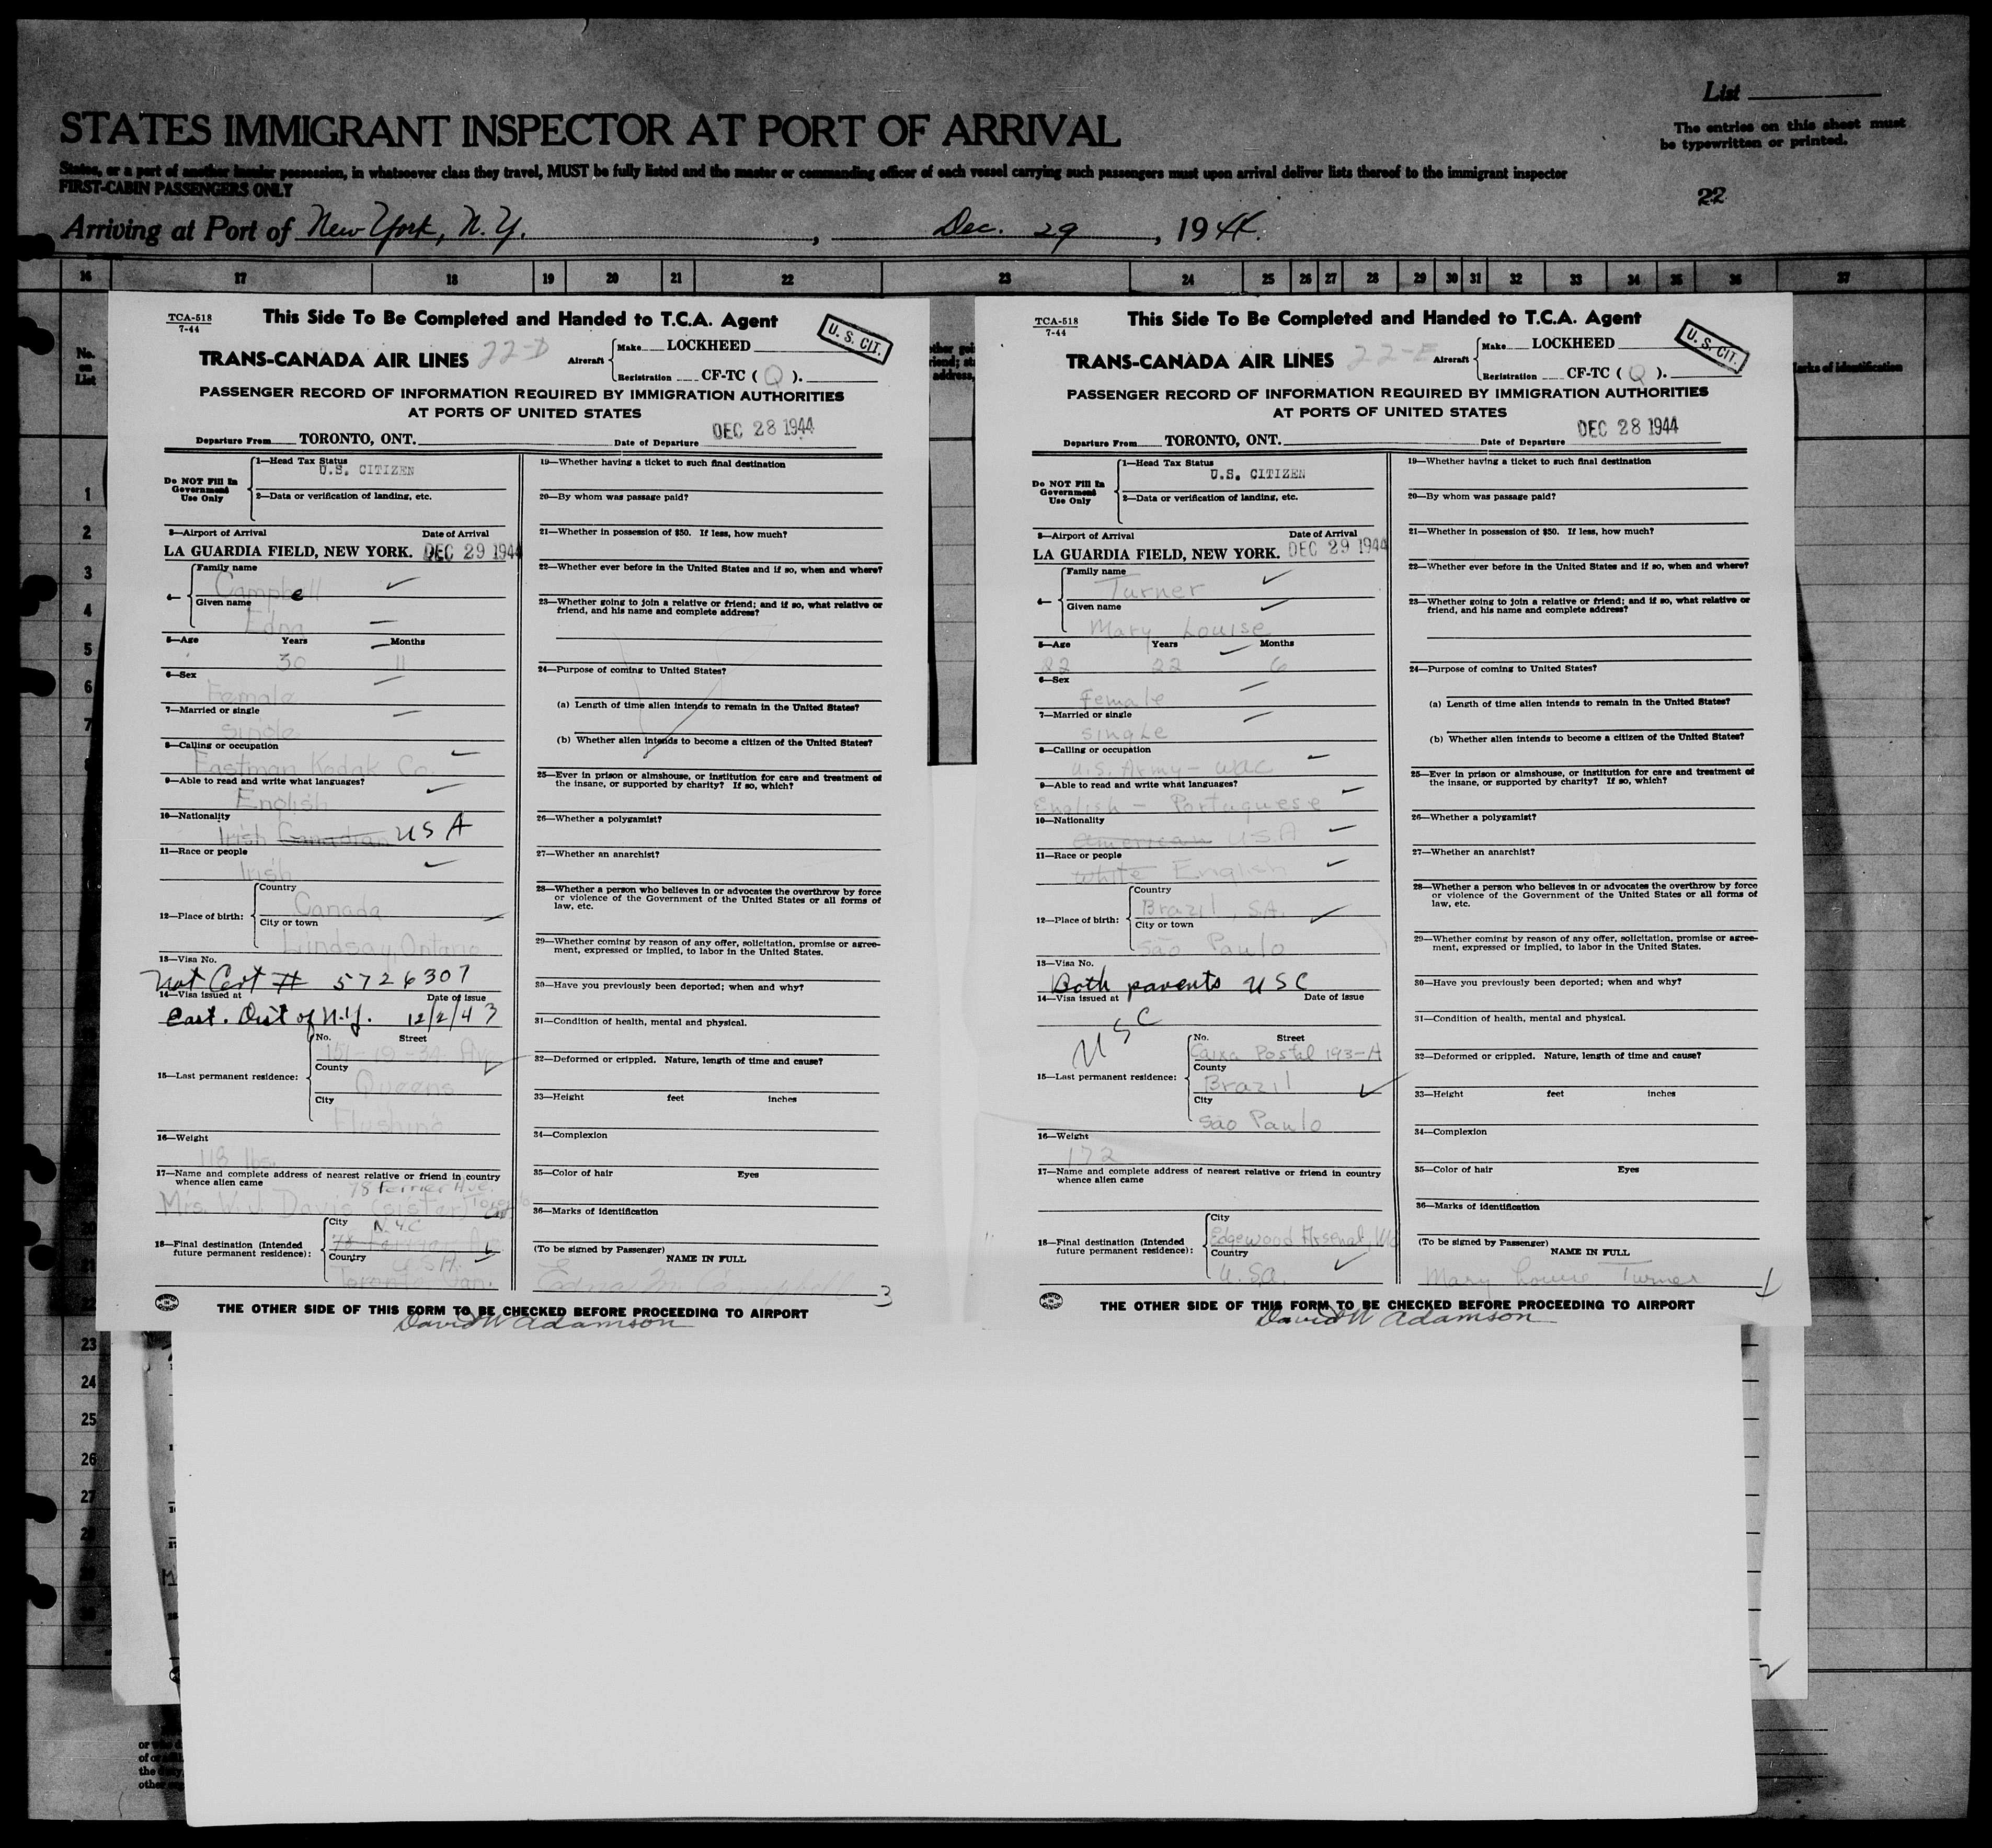 List
STATES IMMIGRANT INSPECTOR AT PORT OF ARRIVAL
The entries on this sheet must
be typewritten or printed.
States, or a port of another insular possession, in whatsoever class they travel, MUST be fully listed and the master or commanding officer of each vessel carrying such passengers must upon arrival deliver lists thereof to the immigrant inspector
FIRST-CABIN PASSENGERS ONLY
22
Arriving at Port of New York, N.Y. , Dec. 29 , 1944.
16 17 18 19 20 21 22 23 24 25 26 27 28 29 30 31 32 33 34 35 36 37
No.
on
List
1
2
3
4
5
6
7
TCA-518
7-44
This Side To Be Completed and Handed to T.C.A. Agent
U. S. CIT.
TRANS-CANADA AIR LINES 22-D
Aircraft
Make LOCKHEED
Registration CF-TC ( Q ).
PASSENGER RECORD OF INFORMATION REQUIRED BY IMMIGRATION AUTHORITIES
AT PORTS OF UNITED STATES
Departure From TORONTO, ONT. Date of Departure DEC 28 1944
Do NOT Fill In
Government
Use Only
1—Head Tax Status
U.S. CITIZEN
2—Data or verification of landing, etc.
3—Airport of Arrival Date of Arrival
LA GUARDIA FIELD, NEW YORK. DEC 29 1944
4—
Family name
Campbell
Given name
Edna
5—Age Years Months
30 11
6—Sex
Female
7—Married or single
Single
8—Calling or occupation
Eastman Kodak Co.
9—Able to read and write what languages?
English
10—Nationality
Irish Canadian USA
11—Race or people
Irish
12—Place of birth:
Country
Canada
City or town
Lindsay, Ontario
13—Visa No.
Nat Cert # 5726307
14—Visa issued at Date of issue
East. Dist of N.Y. 12/2/43
15—Last permanent residence:
No. Street
County
Queens
City
Flushing
16—Weight
118 lbs.
17—Name and complete address of nearest relative or friend in country
whence alien came
Mrs. W. J. Davis (sister)
18—Final destination (Intended
future permanent residence):
City
N.Y.C
Country
U.S.A.
Toronto Can.
19—Whether having a ticket to such final destination
20—By whom was passage paid?
21—Whether in possession of $50. If less, how much?
22—Whether ever before in the United States and if so, when and where?
23—Whether going to join a relative or friend; and if so, what relative or
friend, and his name and complete address?
24—Purpose of coming to United States?
(a) Length of time alien intends to remain in the United States?
(b) Whether alien intends to become a citizen of the United States?
25—Ever in prison or almshouse, or institution for care and treatment of
the insane, or supported by charity? If so, which?
26—Whether a polygamist?
27—Whether an anarchist?
28—Whether a person who believes in or advocates the overthrow by force
or violence of the Government of the United States or all forms of
law, etc.
29—Whether coming by reason of any offer, solicitation, promise or agree-
ment, expressed or implied, to labor in the United States.
30—Have you previously been deported; when and why?
31—Condition of health, mental and physical.
32—Deformed or crippled. Nature, length of time and cause?
33—Height feet inches
34—Complexion
35—Color of hair Eyes
36—Marks of identification
(To be signed by Passenger)
NAME IN FULL
Edna M. Campbell 3
THE OTHER SIDE OF THIS FORM TO BE CHECKED BEFORE PROCEEDING TO AIRPORT
David W Adamson
TCA-518
7-44
This Side To Be Completed and Handed to T.C.A. Agent
U. S. CIT.
TRANS-CANADA AIR LINES 22-E
Aircraft
Make LOCKHEED
Registration CF-TC ( Q ).
PASSENGER RECORD OF INFORMATION REQUIRED BY IMMIGRATION AUTHORITIES
AT PORTS OF UNITED STATES
Departure From TORONTO, ONT. Date of Departure DEC 28 1944
Do NOT Fill In
Government
Use Only
1—Head Tax Status
U.S. CITIZEN
2—Data or verification of landing, etc.
3—Airport of Arrival Date of Arrival
LA GUARDIA FIELD, NEW YORK. DEC 29 1944
4—
Family name
Turner
Given name
Mary Louise
5—Age Years Months
22 22 6
6—Sex
Female
7—Married or single
Single
8—Calling or occupation
U.S. Army - WAC
9—Able to read and write what languages?
English - Portuguese
10—Nationality
American U.S.A
11—Race or people
White English
12—Place of birth:
Country
Brazil, S.A.
City or town
São Paulo
13—Visa No.
Both parents USC
14—Visa issued at Date of issue
USC
15—Last permanent residence:
No. Street
Caixa Postal 193-A
County
Brazil
City
São Paulo
16—Weight
172
17—Name and complete address of nearest relative or friend in country
whence alien came
18—Final destination (Intended
future permanent residence):
City
Edgewood Arsenal, Md
Country
U.S.A.
19—Whether having a ticket to such final destination
20—By whom was passage paid?
21—Whether in possession of $50. If less, how much?
22—Whether ever before in the United States and if so, when and where?
23—Whether going to join a relative or friend; and if so, what relative or
friend, and his name and complete address?
24—Purpose of coming to United States?
(a) Length of time alien intends to remain in the United States?
(b) Whether alien intends to become a citizen of the United States?
25—Ever in prison or almshouse, or institution for care and treatment of
the insane, or supported by charity? If so, which?
26—Whether a polygamist?
27—Whether an anarchist?
28—Whether a person who believes in or advocates the overthrow by force
or violence of the Government of the United States or all forms of
law, etc.
29—Whether coming by reason of any offer, solicitation, promise or agree-
ment, expressed or implied, to labor in the United States.
30—Have you previously been deported; when and why?
31—Condition of health, mental and physical.
32—Deformed or crippled. Nature, length of time and cause?
33—Height feet inches
34—Complexion
35—Color of hair Eyes
36—Marks of identification
(To be signed by Passenger)
NAME IN FULL
Mary Louise Turner 1
THE OTHER SIDE OF THIS FORM TO BE CHECKED BEFORE PROCEEDING TO AIRPORT
David W Adamson
marks of identification
23
24
25
26
27
2